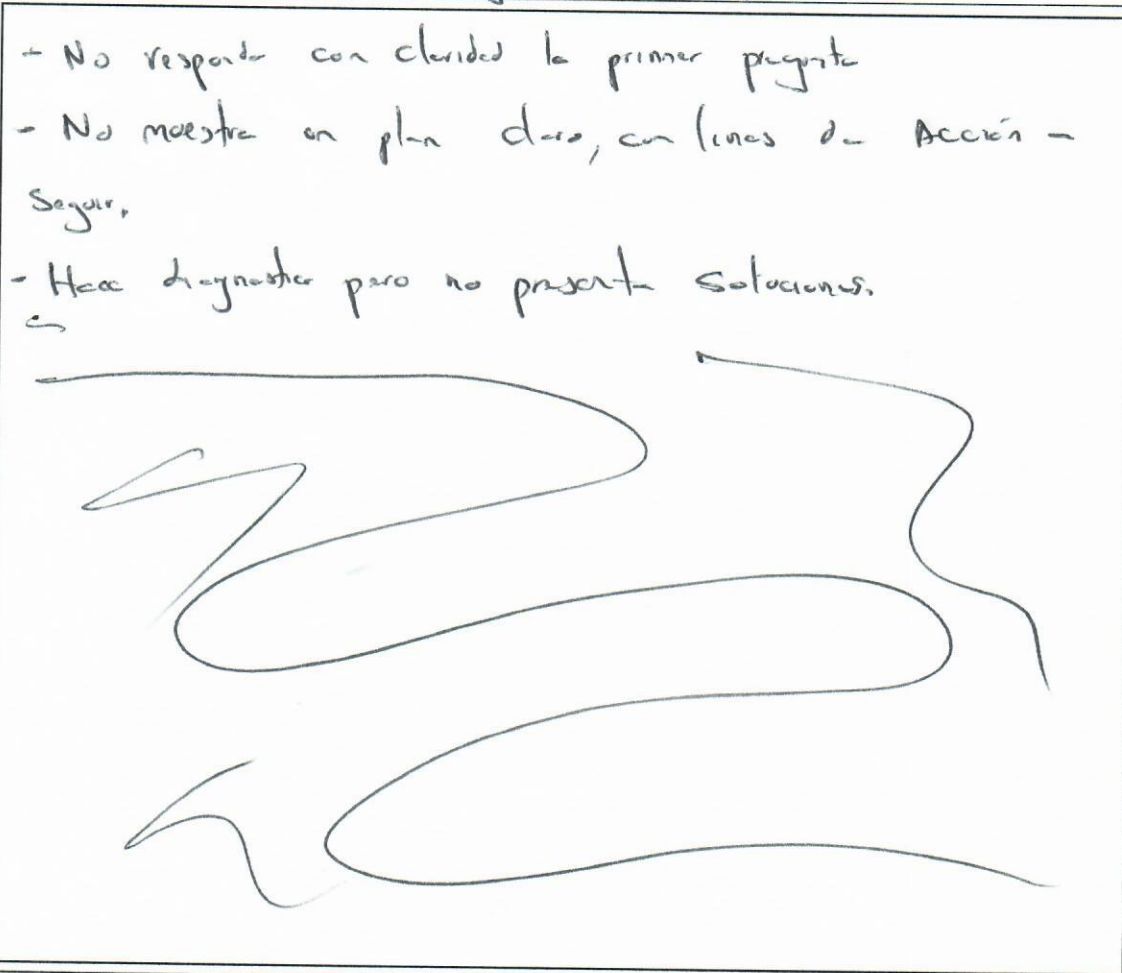 - No responde con claridad la primer pregunta
- No muestra un plan claro, con lineas de Acción a
Seguir.
- Hace diagnostico pero no presenta Soluciones.